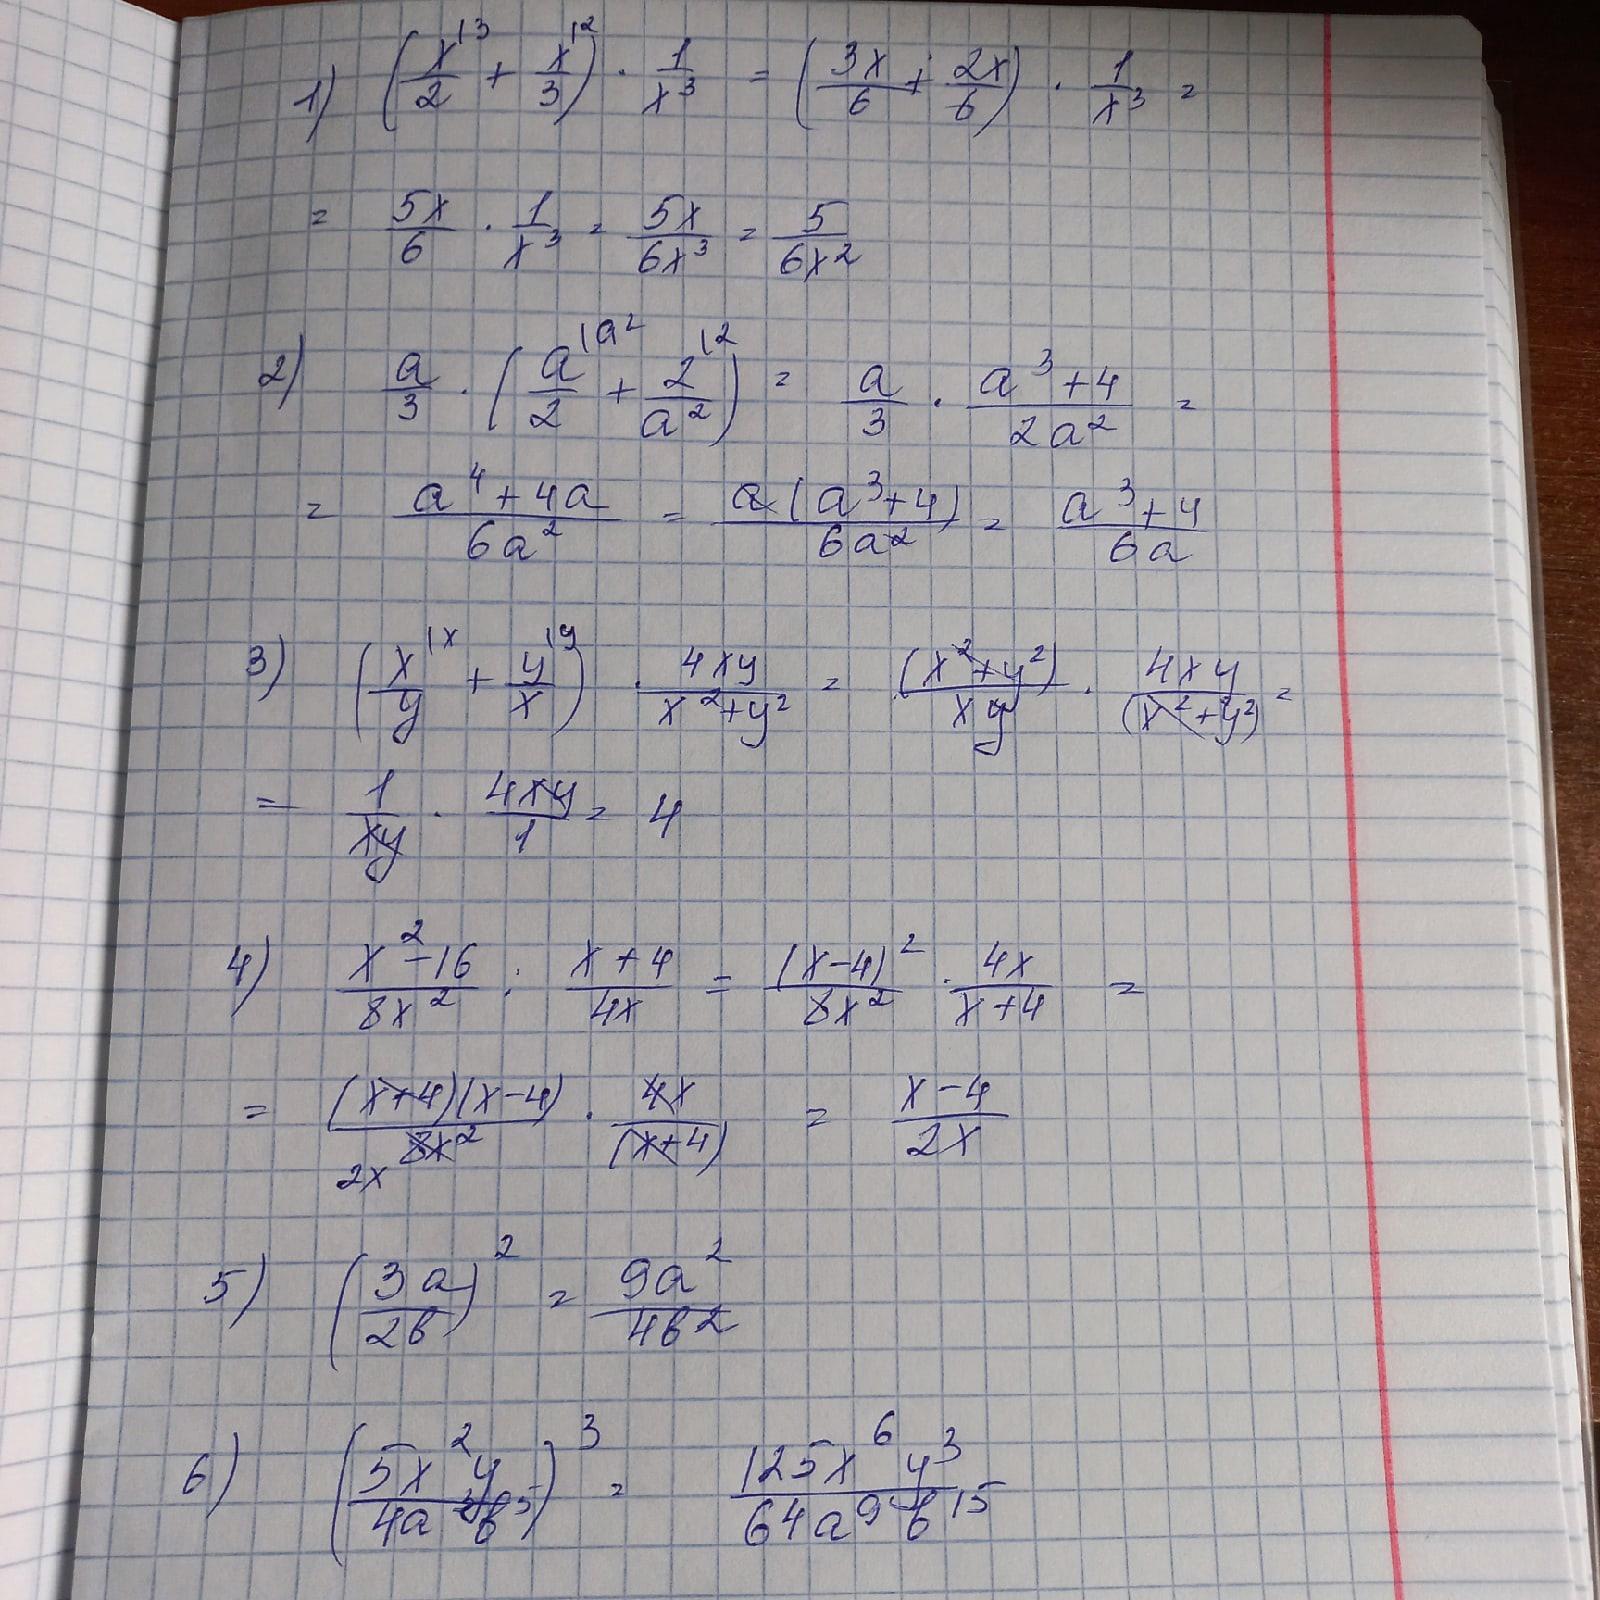 1) (x/2^{|3} + x/3^{|2}) · 1/x³ = (3x/6 + 2x/6) · 1/x³ =
= 5x/6 · 1/x³ = 5x/6x³ = 5/6x²
2) a/3 · (a/2^{|a²} + 2/a²^{|2}) = a/3 · (a³+4)/2a² =
= (a⁴+4a)/6a² = a(a³+4)/6a² = (a³+4)/6a
3) (x/y^{|x} + y/x^{|y}) · 4xy/(x²+y²) = (x²+y²)/xy · 4xy/(x²+y²) =
= 1/xy · 4xy/1 = 4
4) (x²-16)/8x² : (x+4)/4x = (x-4)²/8x² · 4x/(x+4) =
= (x+4)(x-4)/8x² · 4x/(x+4) = (x-4)/2x
2x
5) (3a/2b)² = 9a²/4b²
6) (5x²y/4a³b⁵)³ = 125x⁶y³/64a⁹b¹⁵